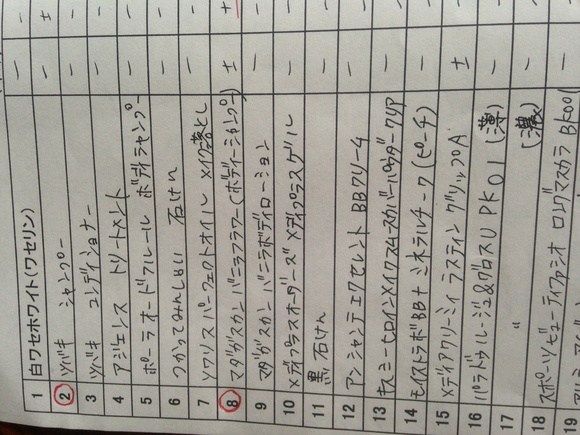 1 白ワセホワイト(ワセリン) － －
2 ツバキ シャンプー － ±
3 ツバキ コンディショナー － －
4 アジエンス トリートメント － －
5 ポーラオードフルール ボディシャンプー － －
6 つかってみんしゃい 石けん － －
7 ソワリス パーフェクトオイル メイク落とし － －
8 マダガスカン バニラフラワー(ボディーシャンプー) ± +
9 マダガスカン バニラボディローション － －
10 メディプラスオーダーズ メディプラスゲル － －
11 黒 石けん － －
12 アンシャンテエクセレント BBクリーム － －
13 キスミーヒロインメイク － －
14 モイストラボBB+ミネラルチーク(ピーチ) － －
15 メディア ラスティング A ± －
16 パラドゥルージュ&グロスU PK01 (薄) － －
17 〃 (濃) － －
18 スポーツビューティファシオ ロングマスカラ BK001 －
19